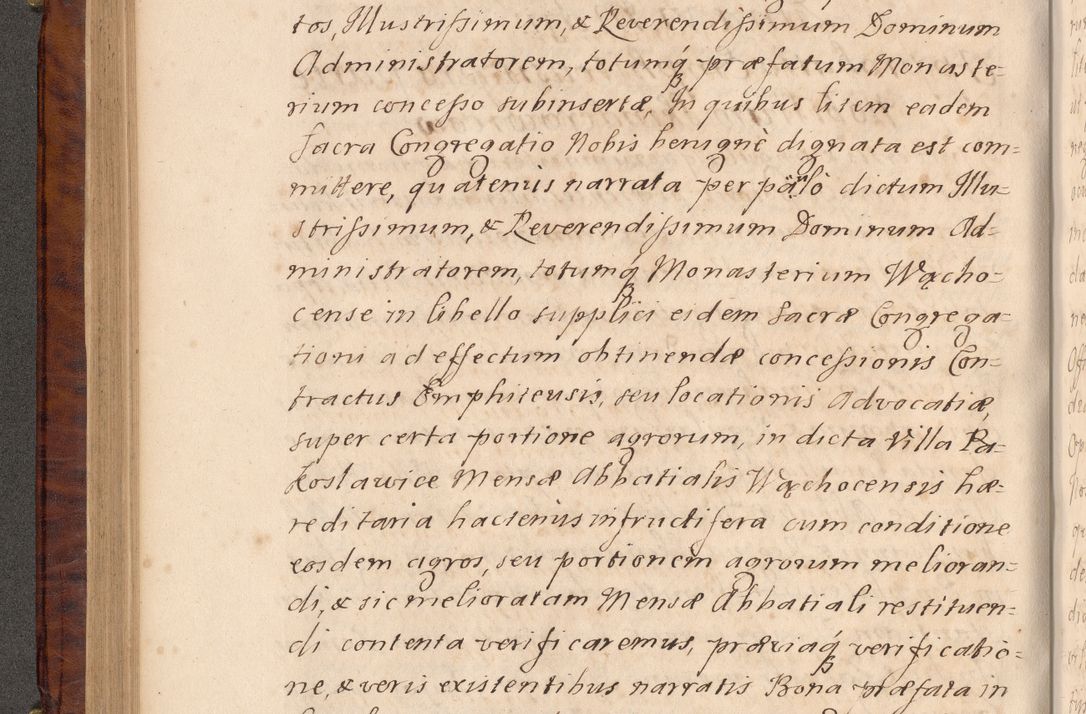 tos, Illustrissimum, & Reverendissimum Dominum
Administratorem, totumq́ præfatum Monaste=
rium concesso subinsertæ, In quibus litem eadem
Sacra Congregatio Nobis benignè dignata est com=
mittere, quatenus narrata per præ dictum Illu=
strissimum, & Reverendissimum Dominum Ad=
ministratorem, totumq́ Monasterium Wącho=
cense in libello supplici eidem Sacræ Congrega=
tioni ad effectum obtinendæ concessionis Con=
tractus Emphiteusis, seu locationis Advocatiæ,
super certa portione agrorum, in dicta Villa Ra=
koslawice Mensæ Abbatialis Wąchocensis hæ=
reditaria hactenus infructifera cum conditione
eosdem agros, seu portionem agrorum melioran=
di, & sic melioratam Mensæ Abbatiali restituen=
di contenta verificaremus, præviaq́ verificatio=
ne, & veris existentibus narratis Bona præfata in